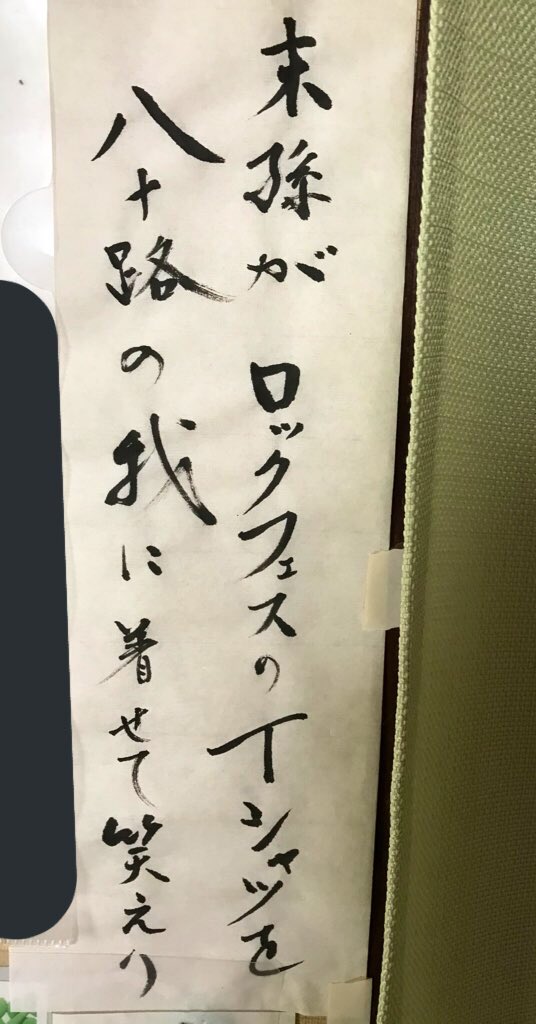 末孫が ロックフェスのTシャツを
八十路の我に着せて笑えり